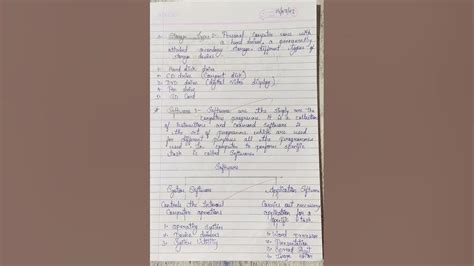 Storage Types :- Personal Computer come with
a hard drive, a permanently
attached secondary storage different types of
storage devices
1- Hard disk drive
2- CD drive (Compact disk)
3- DVD drive (digital video display)
4- Pen drive
5- SD Card
* Software :- Software are the simply are the
computer programme. It is a collection
of instructions and command Software is
the set of programme which are used
for different purpose all the programmes
used in computer to perform specific
task is called Software.
Software
System Software
Application Software
Controls the internal
Computer operations
Carries out necessary
application for a
specific task
1- operating system
2- Device drivers
3- System Utility
1- Word processor
2- Presentation